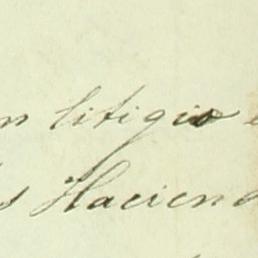 n litigio e
s Haciend